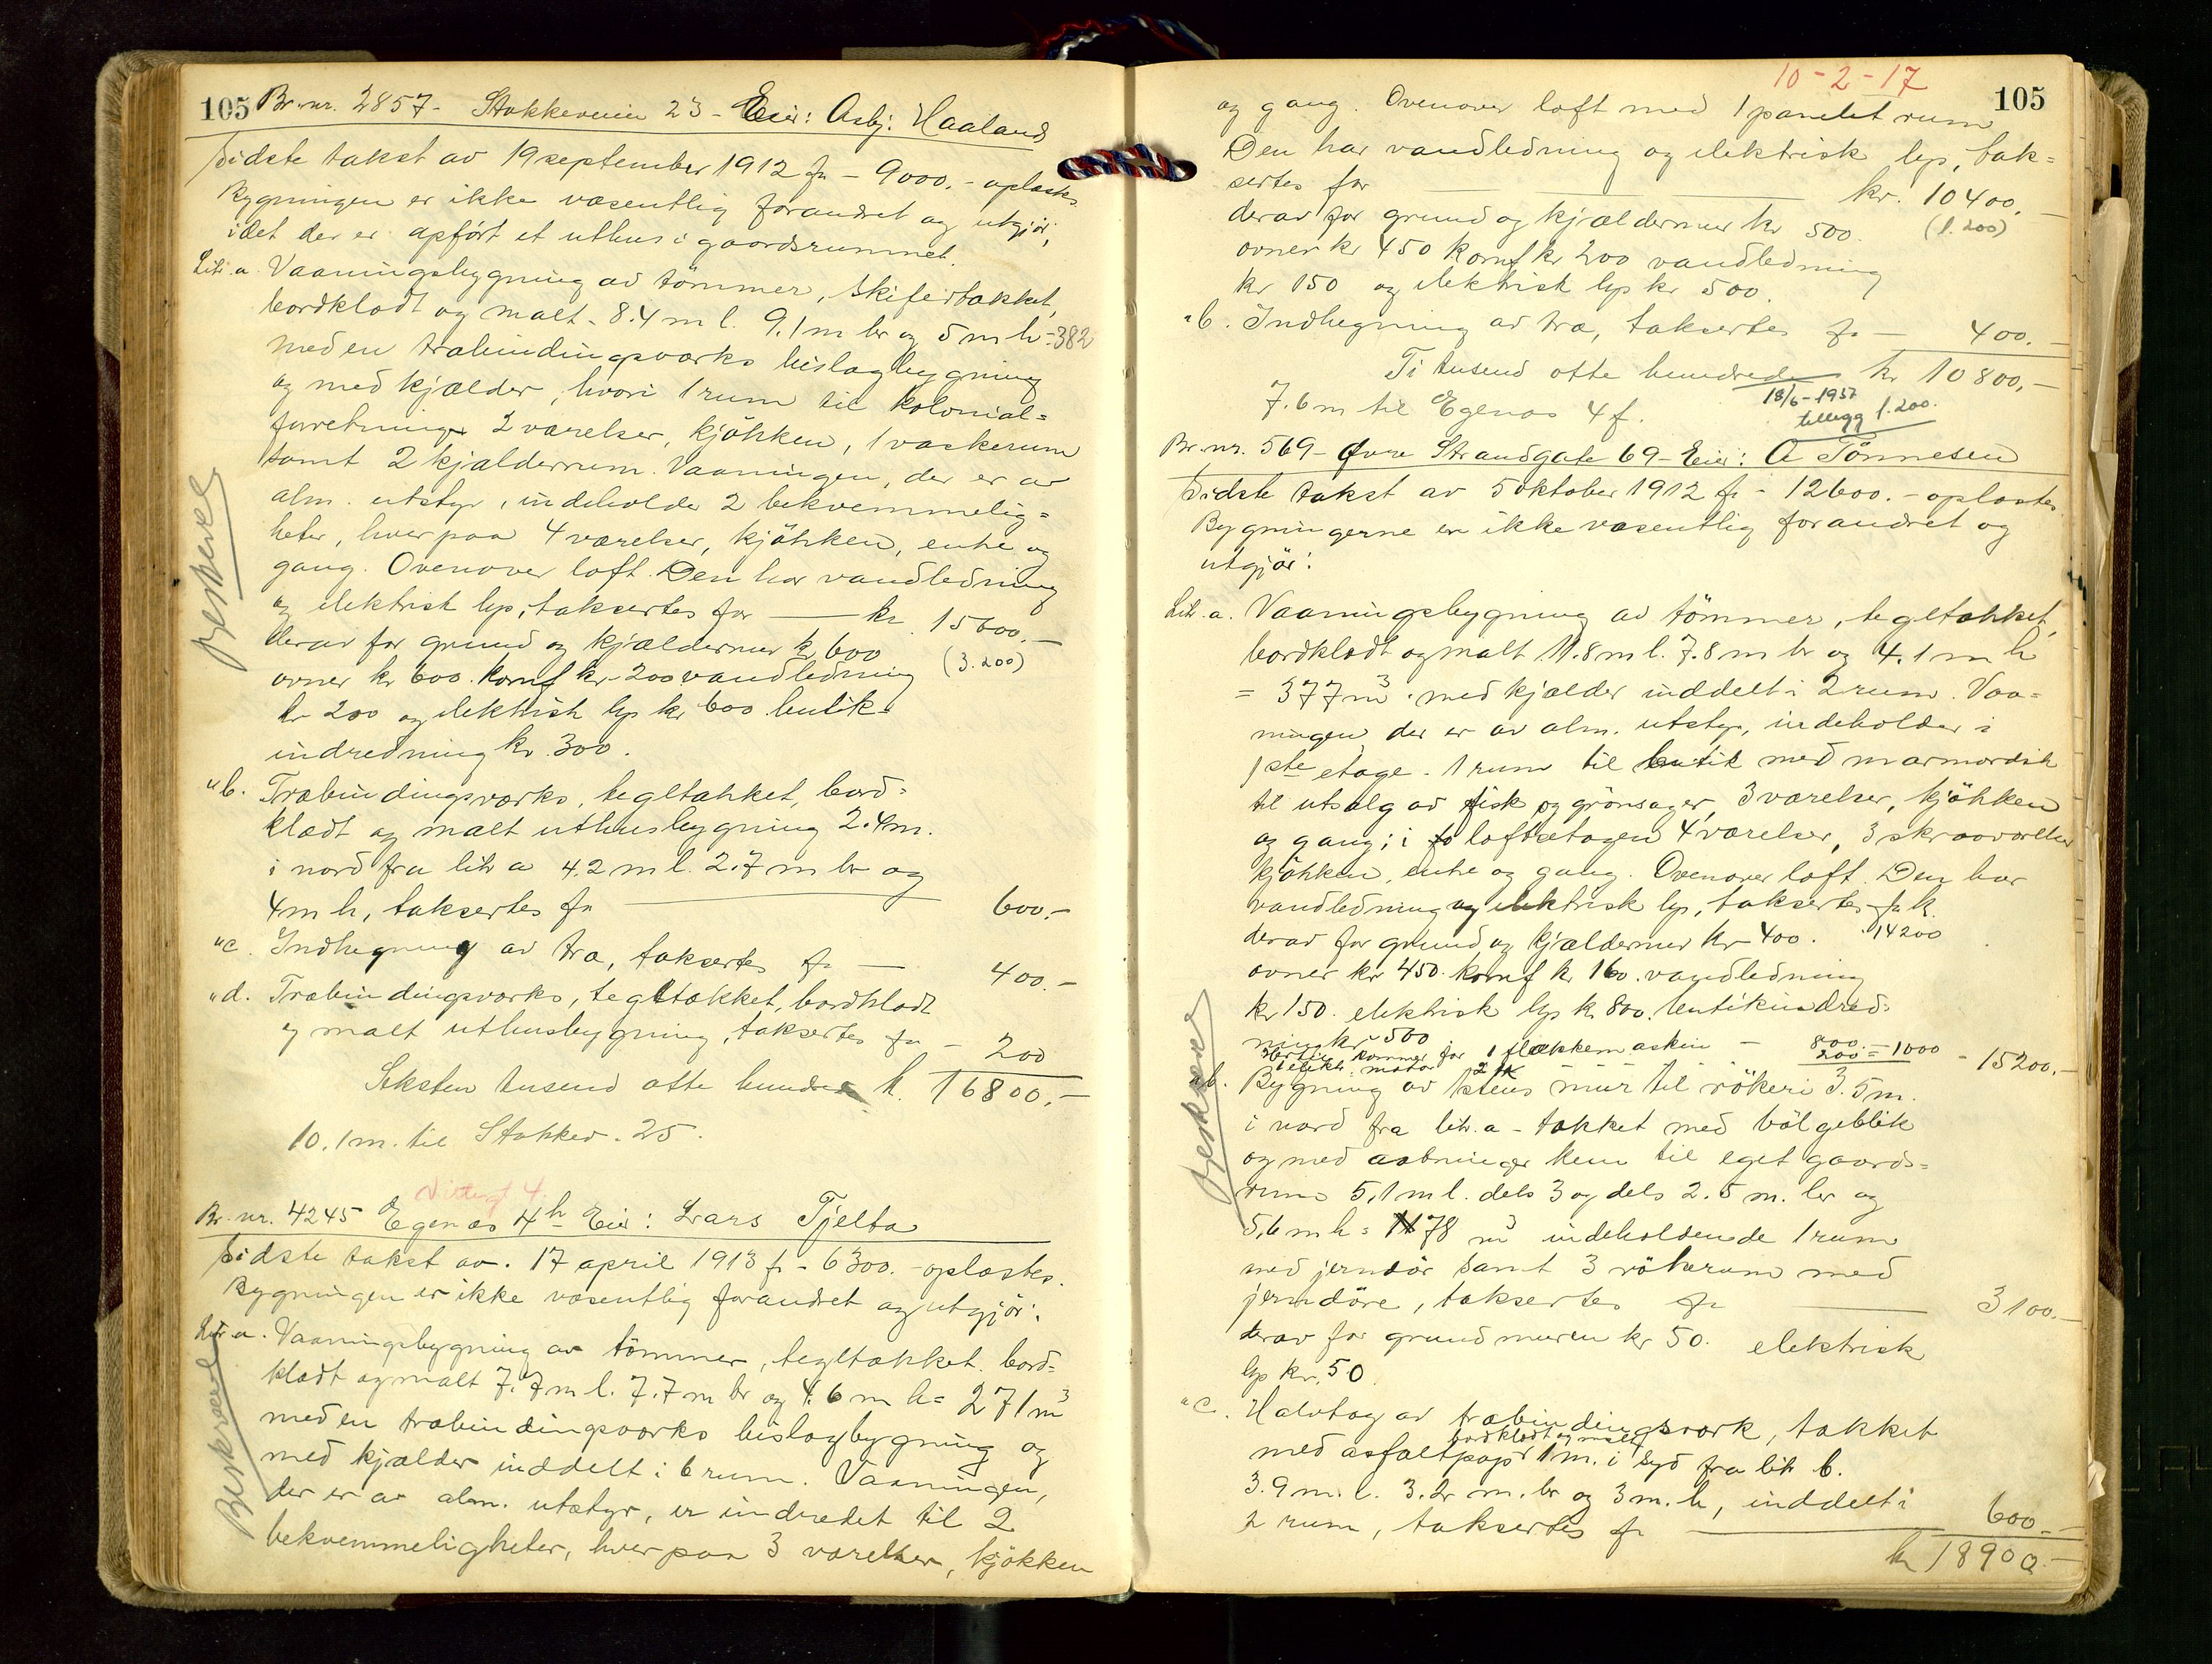 105 Br. nr. 2857 - Stokkeveien 23 - Eier: Asbj. Haaland
Sidste takst av 19 september 1912 fr - 9000. - oplæstes
Bygningen er ikke væsentlig forandret og utgjør,
idet der er opført et uthus i gaardsrummet.
Litr. a. Vaaningsbygning av tömmer, skifertækket,
bordklædt og malt - 8.4 m l. 9.1 m br og 5 m h = 382
med en træbindingsværks bislagbygning
og med kjælder, hvori 1 rum til kolonial=
forretning 2 værelser, kjökken, 1 vaskerum
samt 2 kjælderrum. Vaaningen, der er av
alm. utstyr, indeholder 2 bekvemmelig=
heter, hver paa 4 værelser, kjökken, entre og
gang. Ovenover loft. Den har vandledning
og elektrisk lys, taksertes for — kr. 15600.—
derav for grund og kjældermur kr 600 (3.200)
ovner kr 600. komf kr 200 vandledning
kr 200 og elektrisk lys kr 600 butik=
indredning kr. 300.
Beskrevet
"b. Træbindingsværks, tegltækket, bord=
klædt og malt uthusbygning 2.4 m.
i nord fra litr a 4.2 m l. 2.7 m br og
4 m h, taksertes fr — 600.—
"c. Indhegning av træ, taksertes fr — 400.—
"d. Træbindingsværks, tegltækket, bordklædt
og malt uthusbygning, taksertes fr — 200
Seksten tusend otte hundre k. 16800.—
10.1 m. til Stokkev. 25.
Br. nr. 4245 Egenæs 4h Eier: Lars Tjelta
Sidste takst av. 17 april 1913 fr - 6300. - oplæstes.
Bygningen er ikke væsentlig forandret og utgjör:
Litr a. Vaaningsbygning av tömmer, tegltækket. bord=
klædt og malt 7.7 m l. 7.7 m br og 4.6 m h = 271 m3
med en træbindingsværks bislagbygning og
med kjælder inddelt i 6 rum. Vaaningen,
der er av alm. utstyr, er indredet til 2
bekvemmeligheter, hver paa 3 værelser, kjökken
Beskrevet
10-2-17
105
og gang. Ovenover loft med 1 panelet rum
Den har vandledning og elektrisk lys, tak=
sertes for — kr. 10400.—
derav for grund og kjældermur kr 500. (1.200)
ovner kr 450 komf kr 200 vandledning
kr 150 og elektrisk lys kr 500.
"b. Indhegning av træ, taksertes fr — 400.—
Ti tusend otte hundrede kr 10800,—
7.6 m til Egenæs 4 f. 18/6-1937
tillegg 1.200.
Br. nr. 569 - Øvre Strandgate 69 - Eier: A Tönnesen
Sidste takst av 5 oktober 1912 fr - 12600. - oplæstes
Bygningerne er ikke væsentlig forandret og
utgjör:
Litr. a. Vaaningsbygning av tömmer, tegltækket,
bordklædt og malt 11.8 m l. 7.8 m br og 4.1 m h
= 377 m3. med kjælder inddelt i 2 rum. Vaa=
ningen, der er av alm. utstyr, indeholder i
1ste etage - 1 rum til butik med marmordisk
til utsalg av fisk og grönsager, 3 værelser, kjökken
og gang; i loftsetagen 4 værelser, 3 skraaværelser
kjökken, entre og gang. Ovenover loft. Den har
vandledning og elektrisk lys, taksertes fr k.
derav for grund og kjældermur kr 400. 14200
ovner kr 450. komf k 160. vandledning
kr 150. elektrisk lys k 800. butikindred=
ning kr 500
Hertil kommer for 1 flækkemaskin — 800.—
1 elektr. motor 2 200 = 1000 - 15200.—
"b. Bygning av stens mur til rökeri 3.5 m.
i nord fra litr. a - tækket med bölgeblik
og med aabninger kun til eget gaards=
rum 5,1 m l. dels 3 og dels 2.5 m. br og
5,6 m h = 78 m3 indeholdende 1 rum
med jerndör samt 3 rökerum med
jerndöre, taksertes fr — 3100.—
derav for grundmuren kr 50. elektrisk
lys kr. 50.
Beskrevet
"c. Halvtag av træbindingsverk, tækket
bordklædt og malt
med asfaltpapp 1 m. i syd fra litr b.
3.9 m. l. 3.2 m. br og 3 m. h, inddelt i
2 rum, taksertes fr — 600.—
kr 18900.—